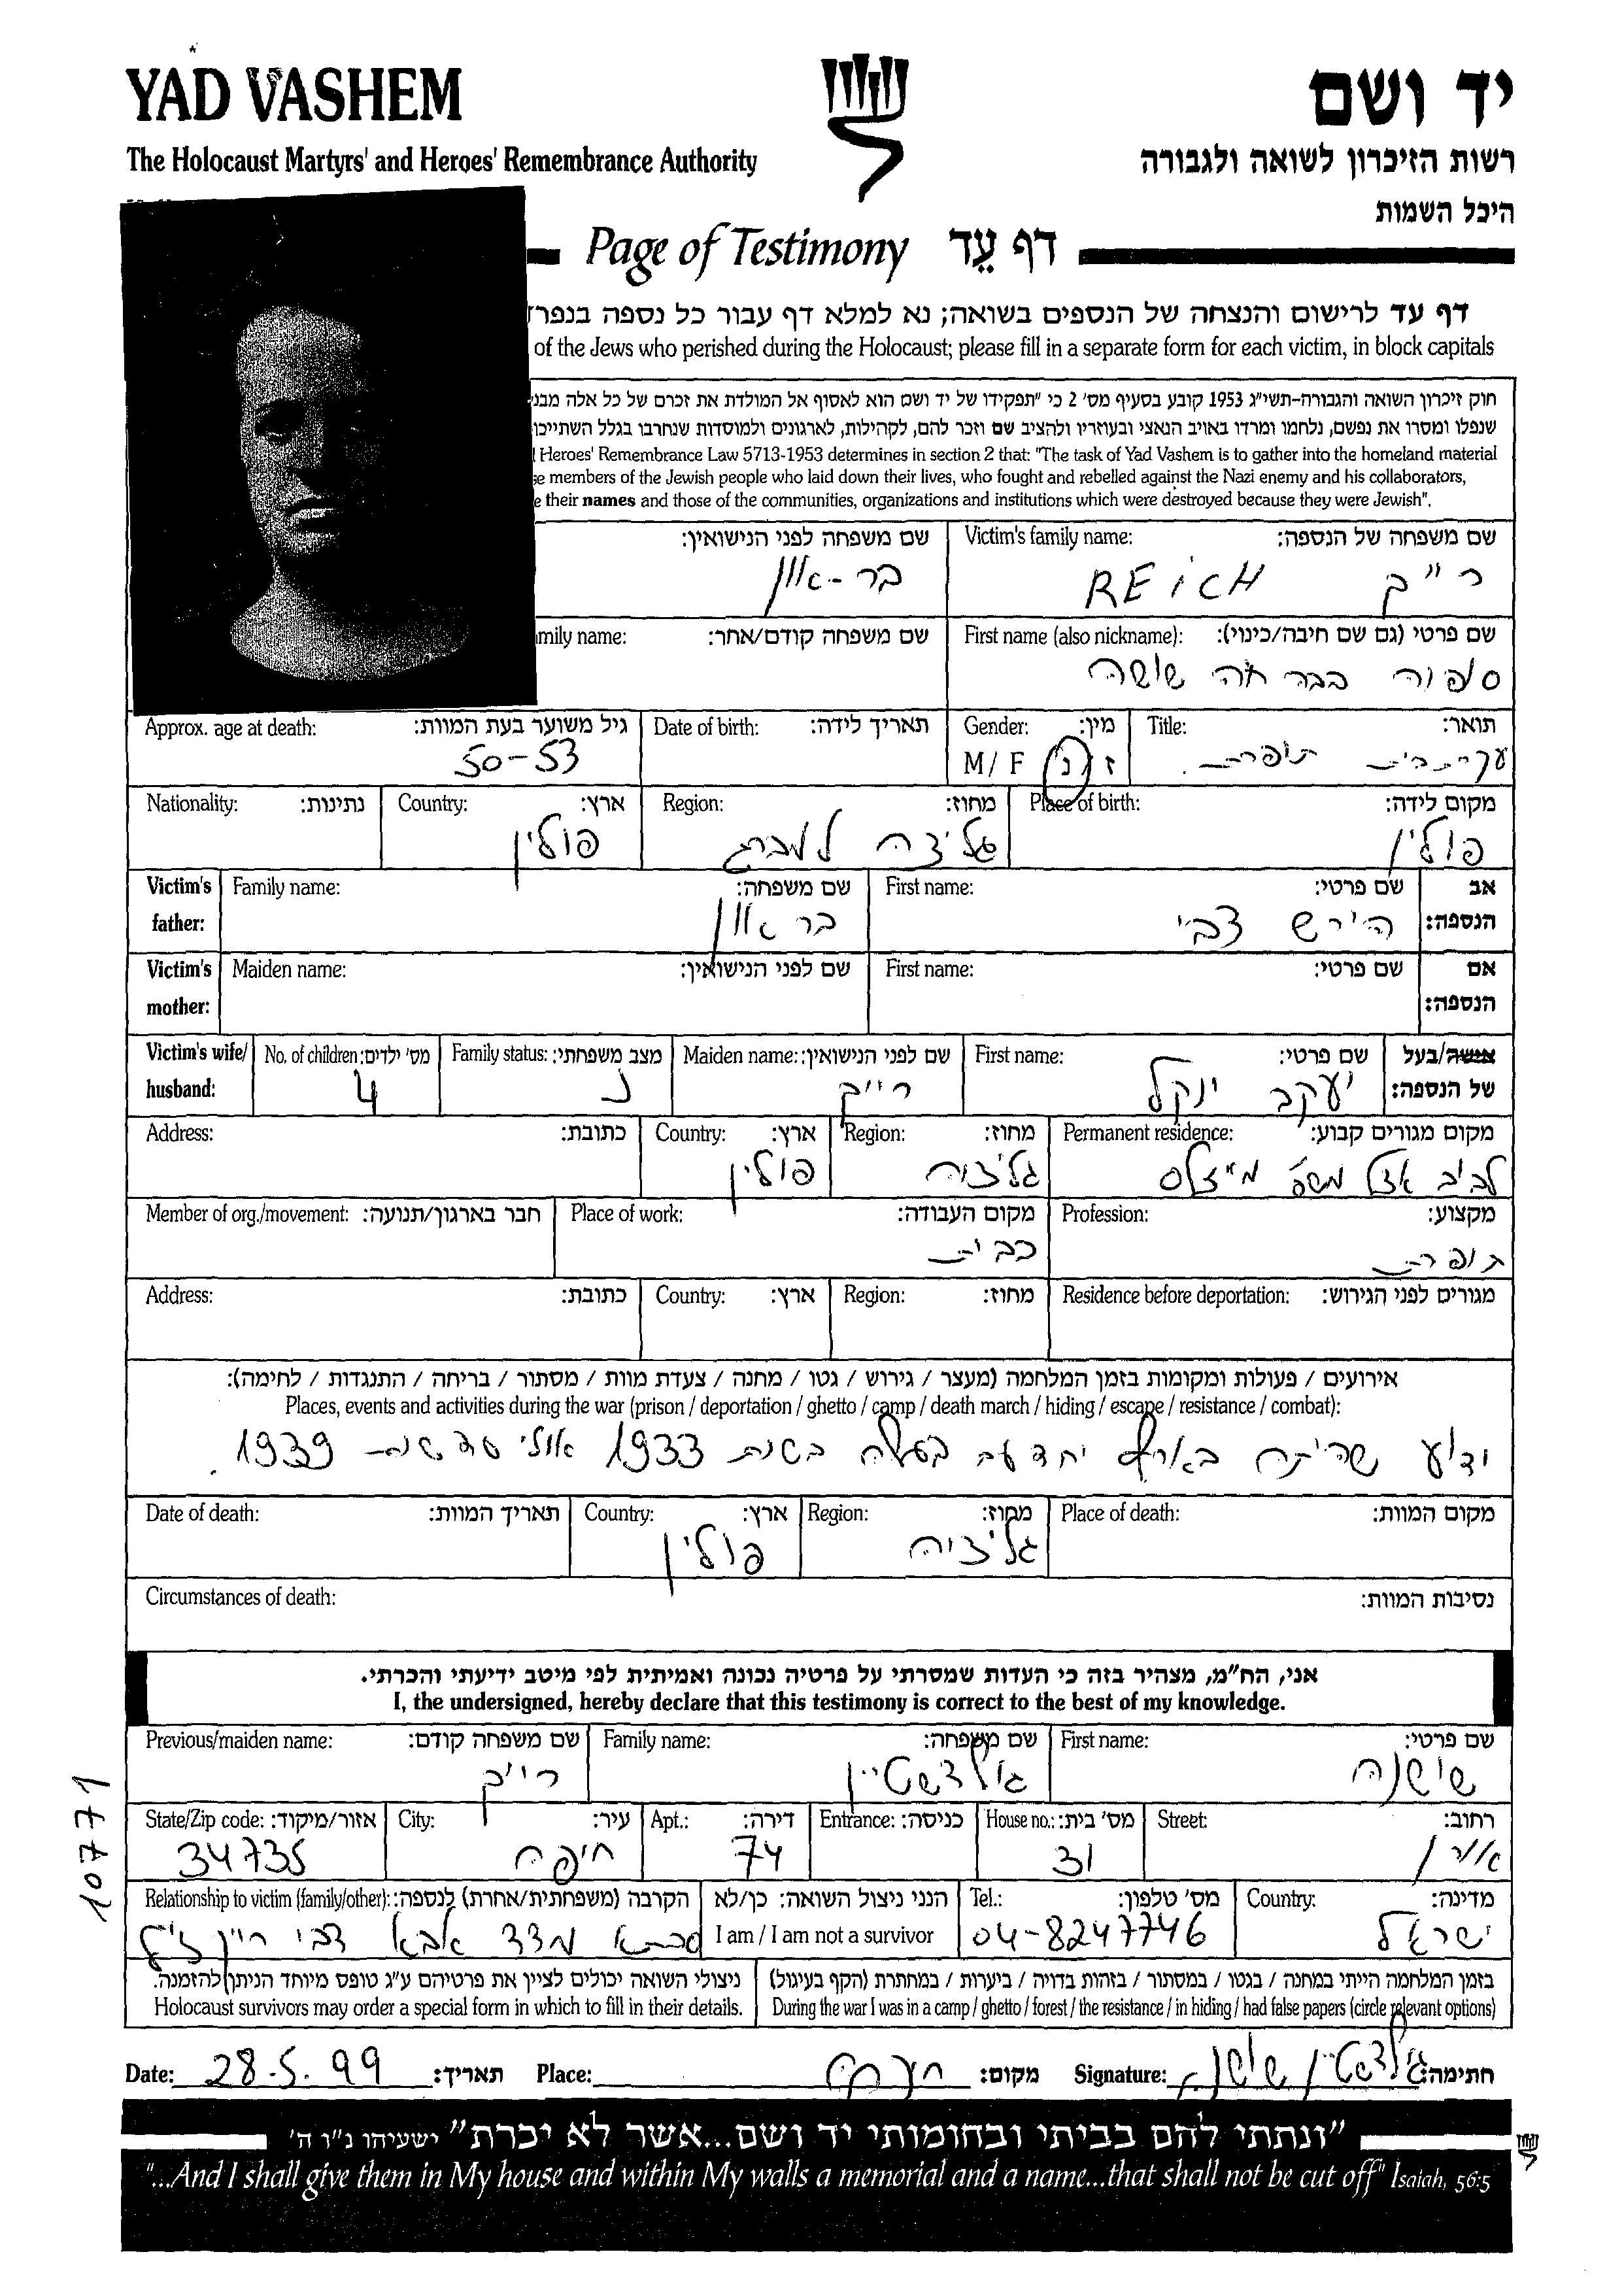 YAD VASHEM
יד ושם
The Holocaust Martyrs' and Heroes' Remembrance Authority
רשות הזיכרון לשואה ולגבורה
היכל השמות
Page of Testimony דף עֵד
דף עד לרישום והנצחה של הנספים בשואה; נא למלא דף עבור כל נספה בנפרד
of the Jews who perished during the Holocaust; please fill in a separate form for each victim, in block capitals
חוק זיכרון השואה והגבורה-תשי"ג 1953 קובע בסעיף מס' 2 כי "תפקידו של יד ושם הוא לאסוף אל המולדת את זכרם של כל אלה מבני
שנפלו ומסרו את נפשם, נלחמו ומרדו באויב הנאצי ובעוזריו ולהציב שם וזכר להם, לקהילות, לארגונים ולמוסדות שנחרבו בגלל השתייכו
Heroes' Remembrance Law 5713-1953 determines in section 2 that: "The task of Yad Vashem is to gather into the homeland material
se members of the Jewish people who laid down their lives, who fought and rebelled against the Nazi enemy and his collaborators,
e their names and those of the communities, organizations and institutions which were destroyed because they were Jewish".
Victim's family name: שם משפחה של הנספה:
רייך REiCH
שם משפחה לפני הנישואין:
בר-און
First name (also nickname): שם פרטי (גם שם חיבה/כינוי):
שושה
mily name: שם משפחה קודם/אחר:
Title: תואר:
עקרת בית תופרת
Gender: מין:
M / F ז / נ
Date of birth: תאריך לידה:
Approx. age at death: גיל משוער בעת המוות:
50-53
Place of birth: מקום לידה:
פולין
Region: מחוז:
גליציה למברג
Country: ארץ:
פולין
Nationality: נתינות:
Victim's father: אב הנספה:
First name: שם פרטי:
הירש צבי
Family name: שם משפחה:
בר און
Victim's mother: אם הנספה:
First name: שם פרטי:
Maiden name: שם לפני הנישואין:
Victim's wife/ husband: אישה/בעל של הנספה:
First name: שם פרטי:
יעקב ינקל
Maiden name: שם לפני הנישואין:
רייך
Family status: מצב משפחתי:
נ
No. of children: מס' ילדים:
4
Permanent residence: מקום מגורים קבוע:
לביב אצל משפ' מייזלס
Region: מחוז:
גליציה
Country: ארץ:
פולין
Address: כתובת:
Profession: מקצוע:
תופרת
Place of work: מקום העבודה:
בבית
Member of org./movement: חבר בארגון/תנועה:
Residence before deportation: מגורים לפני הגירוש:
Region: מחוז:
Country: ארץ:
Address: כתובת:
אירועים / פעולות ומקומות בזמן המלחמה (מעצר / גירוש / גטו / מחנה / צעדת מוות / מסתור / בריחה / התנגדות / לחימה):
Places, events and activities during the war (prison / deportation / ghetto / camp / death march / hiding / escape / resistance / combat):
ידוע שהיתה בארץ יחד עם בעלה בשנת 1933 אולי עד שנת 1939.
Place of death: מקום המוות:
Region: מחוז:
גליציה
Country: ארץ:
פולין
Date of death: תאריך המוות:
Circumstances of death: נסיבות המוות:
אני, הח"מ, מצהיר בזה כי העדות שמסרתי על פרטיה נכונה ואמיתית לפי מיטב ידיעתי והכרתי.
I, the undersigned, hereby declare that this testimony is correct to the best of my knowledge.
First name: שם פרטי:
שושנה
Family name: שם משפחה:
גולדשטיין
Previous/maiden name: שם משפחה קודם:
רייך
Street: רחוב:
House no.: מס' בית:
31
Entrance: כניסה:
Apt.: דירה:
74
City: עיר:
חיפה
State/Zip code: אזור/מיקוד:
34735
10771
Country: מדינה:
ישראל
Tel.: מס' טלפון:
04-8247746
הנני ניצול השואה: כן/לא
I am / I am not a survivor
Relationship to victim (family/other): הקרבה (משפחתית/אחרת) לנספה:
סבתא מצד אבא צבי רייך ז"ל
בזמן המלחמה הייתי במחנה / בגטו / במסתור / בזהות בדויה / ביערות / במחתרת (הקף בעיגול)
During the war I was in a camp / ghetto / forest / the resistance / in hiding / had false papers (circle relevant options)
ניצולי השואה יכולים לציין את פרטיהם ע"ג טופס מיוחד הניתן להזמנה.
Holocaust survivors may order a special form in which to fill in their details.
Date: 28.5.99 תאריך: Place: חיפה מקום: Signature: גולדשטיין שושנה חתימה:
"ונתתי להם בביתי ובחומותי יד ושם...אשר לא יכרת" ישעיהו נ"ו ה'
"...And I shall give them in My house and within My walls a memorial and a name...that shall not be cut off" Isaiah, 56:5